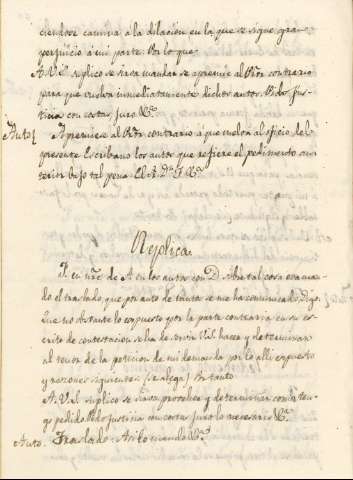 ciendose camina a la dilacion en la que se sigue gran
perjuicio á mi parte: Por lo que.
A.V.S. suplico se sirva mandar se apremie al Pror contrario
para que vuelva inmediatamente dichos autos. Pido Jus-
ticia con costas juro &a.
Auto Apremiese al Pror contrario á que vuelva al oficio del
presente Escribano los autos que refiere el pedimento an-
terior bajo tal pena. El A. Dn F. &a.
Replica.
F. en nre de A en los autos con D. sobre tal cosa evacuan-
do el traslado que por auto de tantos se me ha comunicado. Digo:
Que no obstante lo expuesto por la parte contraria en su es-
crito de contestacion se ha de servir V.S. hacer y determinar
al tenor de la peticion de mi demanda por lo alli expuesto
y razones siguientes: (se alega) Por tanto
A.V.S. suplico se sirva proveher y determinar como ten-
go pedido. Pido Justicia con costas juro lo necesario &a.
Auto. Traslado: Asi lo mando &a.